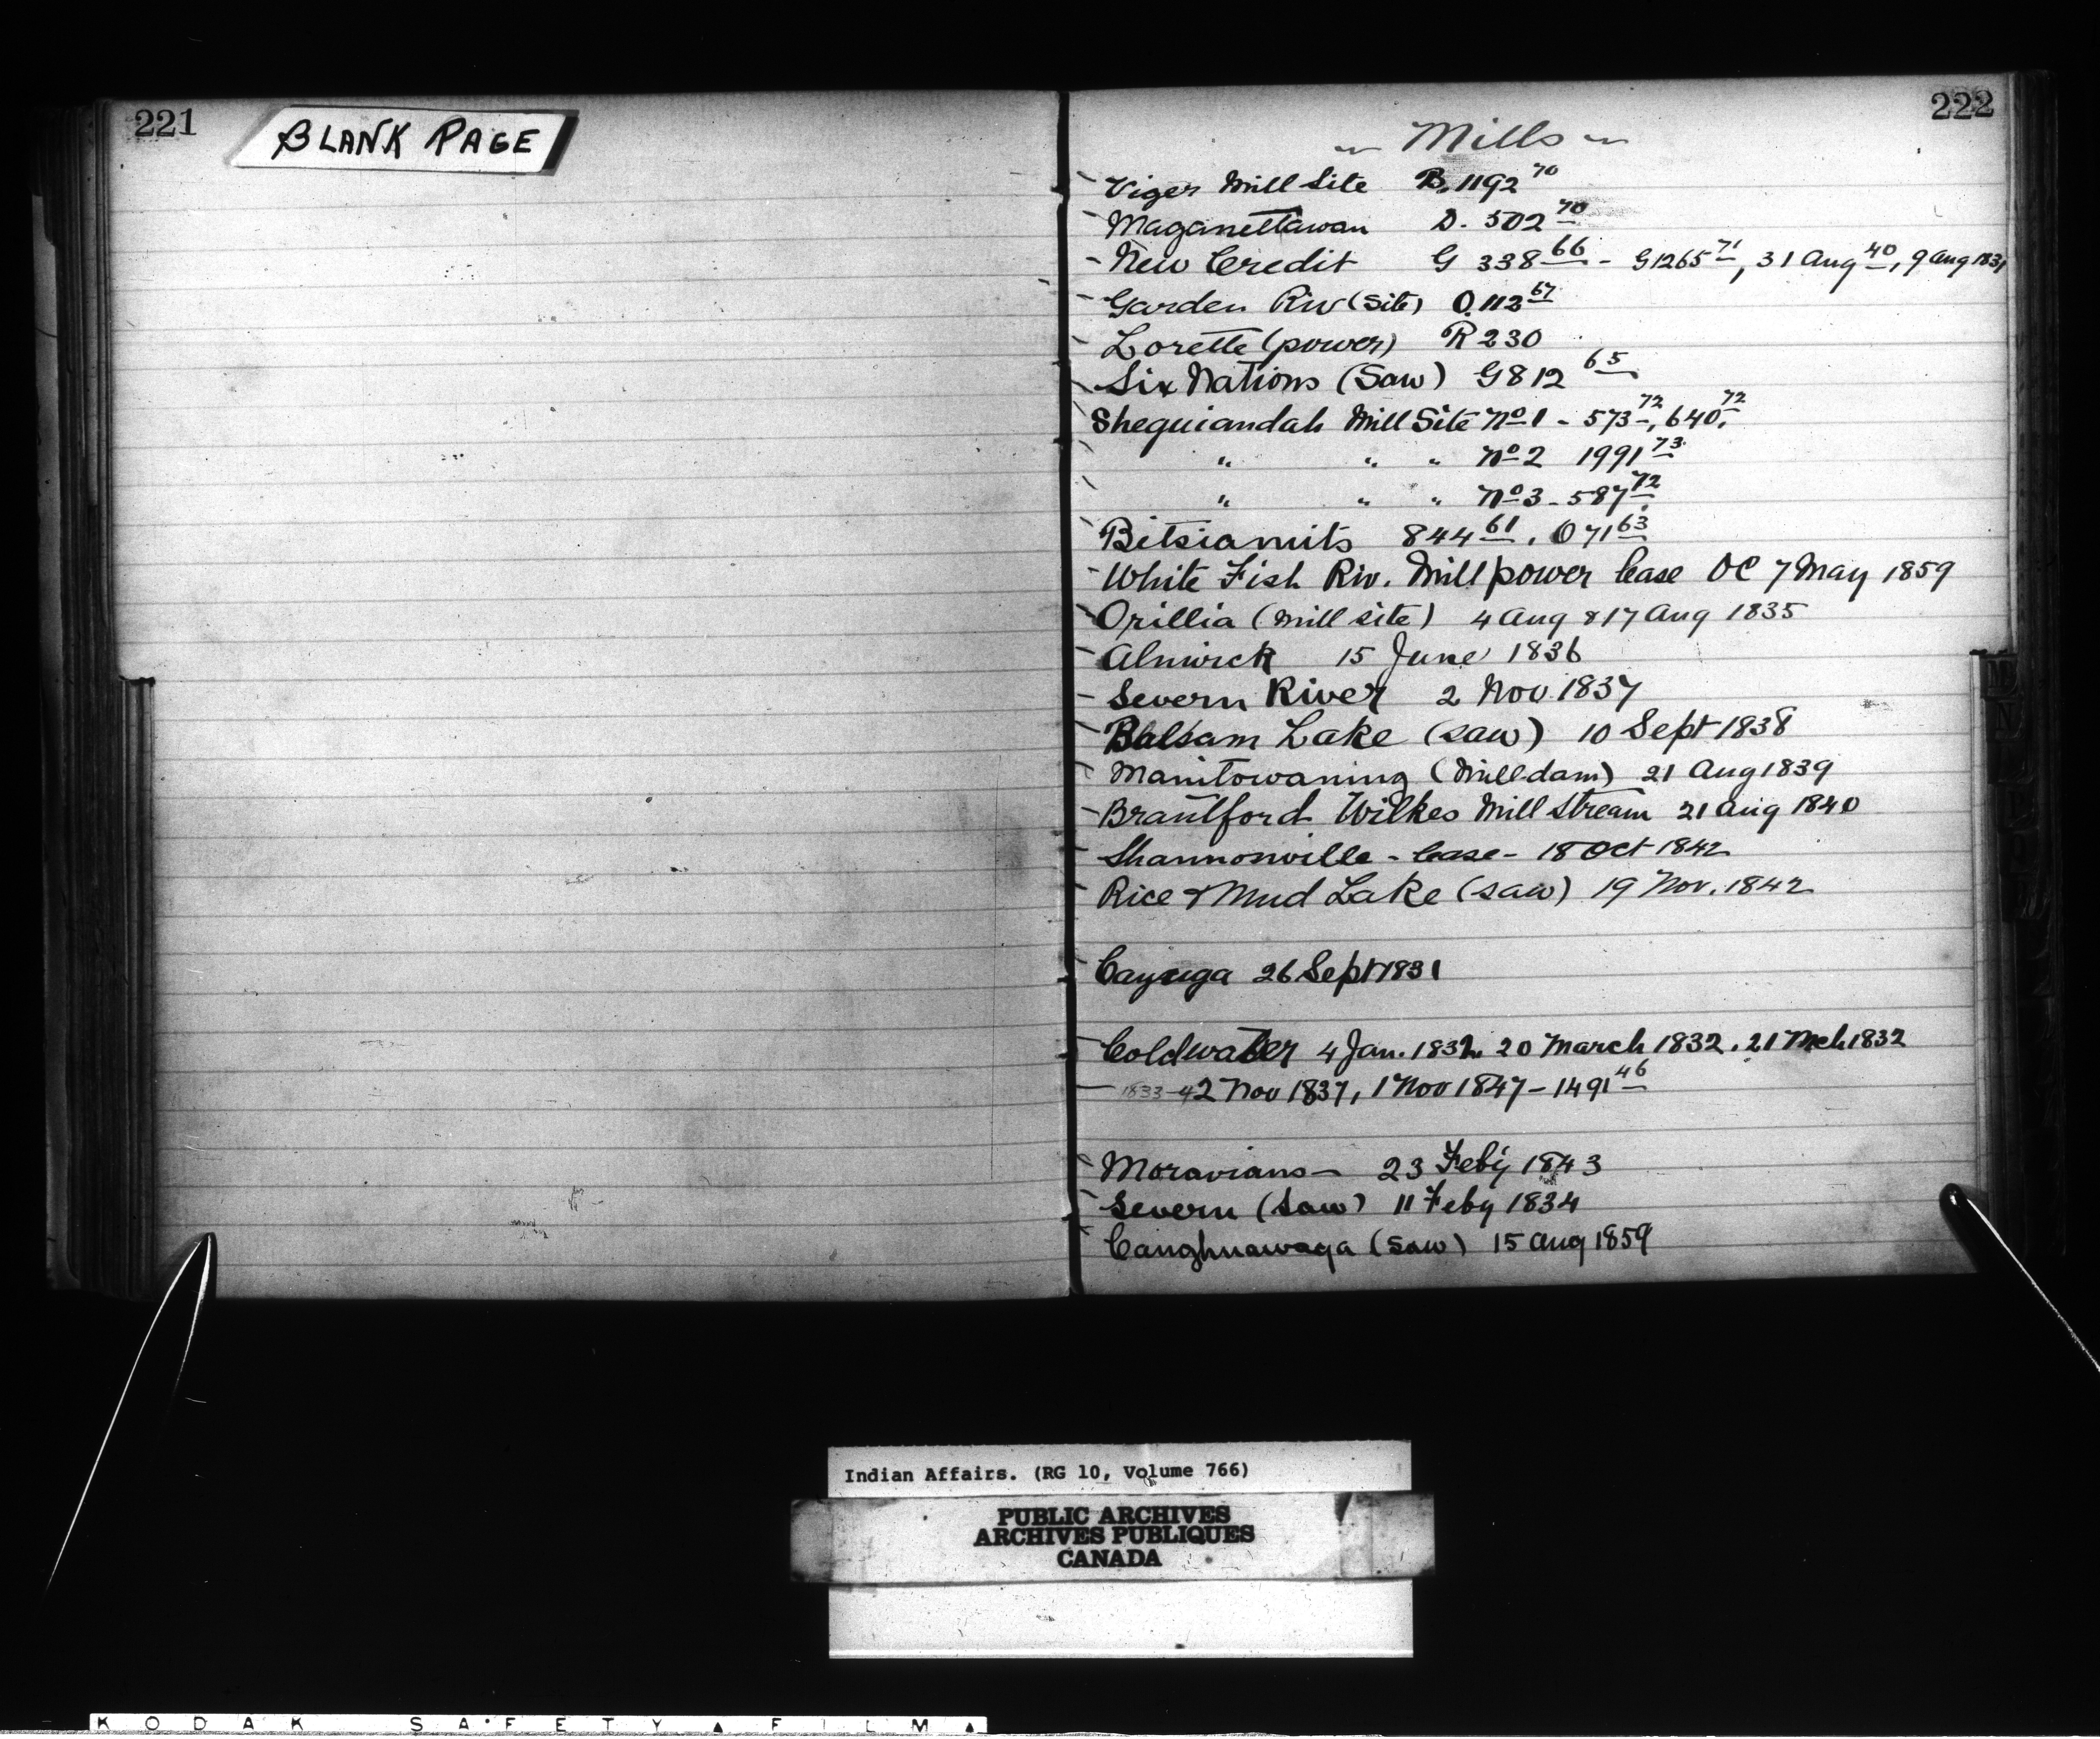 221
BLANK PAGE
222
~ Mills ~
- Viger Mill Site B. 1192 70
- Maganettawan D. 502 70
- New Credit G 338 66 - G1265 71, 31 Aug 40, 9 Aug 1831
- Garden Riv (Site) O.112 67
Lorette (power) R 230
Six Nations (Saw) G812 65
Sheguiandah Mill Site No 1 - 573 72, 640. 72
" " " No 2 1991 73
" " " No 3 - 587 72
Betsiamits 844 61, O 71 63
- White Fish Riv. Mill power lease OC 7 May 1859
Orillia (Mill site) 4 Aug & 17 Aug 1835
- Alnwick 15 June 1836
- Severn River 2 Nov 1837
- Balsam Lake (saw) 10 Sept 1838
Manitowaning (Milldam) 21 Aug 1839
- Brantford Wilkes Mill Stream 21 Aug 1840
Shannonville - lease - 18 Oct 1842
Rice & Mud Lake (saw) 19 Nov. 1842
Cayuga 26 Sept 1831
Coldwater 4 Jan. 1832. 20 March 1832. 21 Mch 1832
— 1833-4 2 Nov 1837, 1 Nov 1847 - 1491 46
Moravians - 23 Feby 1843
Severn (Saw) 11 Feby 1834
Caughnawaga (Saw) 15 Aug 1859
Indian Affairs. (RG 10, Volume 766)
PUBLIC ARCHIVES
ARCHIVES PUBLIQUES
CANADA
KODAK SAFETY ▲ FILM ▲